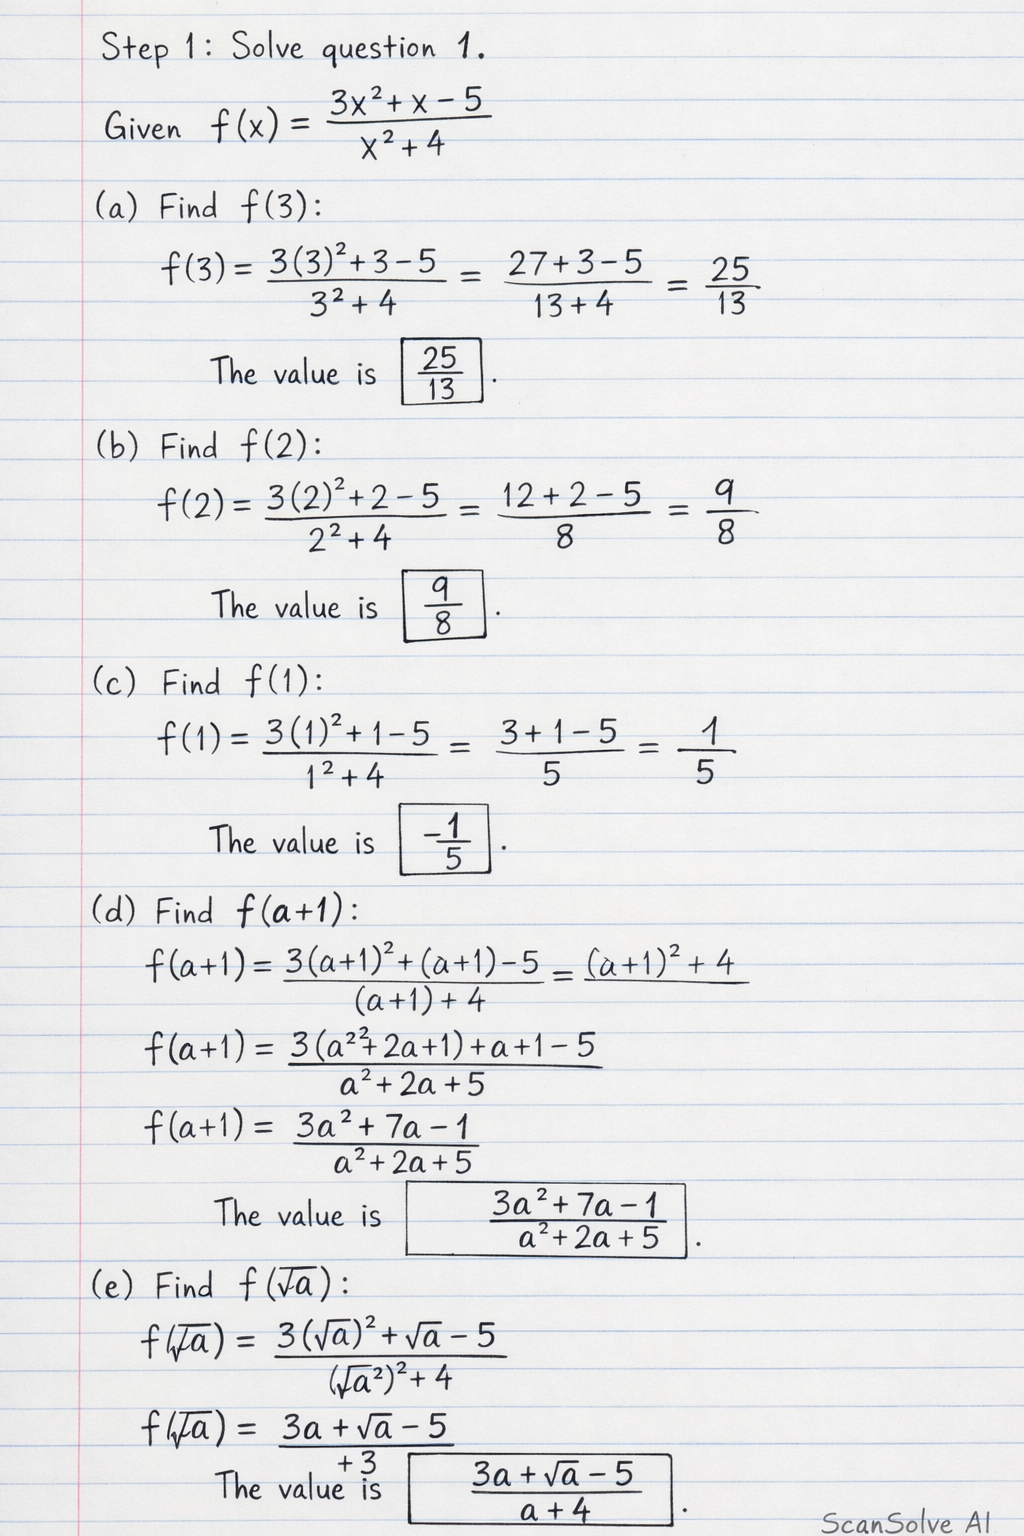 Step 1: Solve question 1.
Given f(x) = (3x² + x − 5)/(x² + 4)
(a) Find f(3):
f(3) = (3(3)² + 3 − 5)/(3² + 4) = (27 + 3 − 5)/(13 + 4) = 25/13
The value is 25/13.
(b) Find f(2):
f(2) = (3(2)² + 2 − 5)/(2² + 4) = (12 + 2 − 5)/8 = 9/8
The value is 9/8.
(c) Find f(1):
f(1) = (3(1)² + 1 − 5)/(1² + 4) = (3 + 1 − 5)/5 = 1/5
The value is −1/5.
(d) Find f(a+1):
f(a+1) = (3(a+1)² + (a+1) − 5)/((a+1) + 4) = (a+1)² + 4
f(a+1) = (3(a²² + 2a + 1) + a + 1 − 5)/(a² + 2a + 5)
f(a+1) = (3a² + 7a − 1)/(a² + 2a + 5)
The value is (3a² + 7a − 1)/(a² + 2a + 5).
(e) Find f(√a):
f(√a) = (3(√a)² + √a − 5)/((√a²)² + 4)
f(√a) = (3a + √a − 5)/(+3)
The value is (3a + √a − 5)/(a + 4).
ScanSolve AI